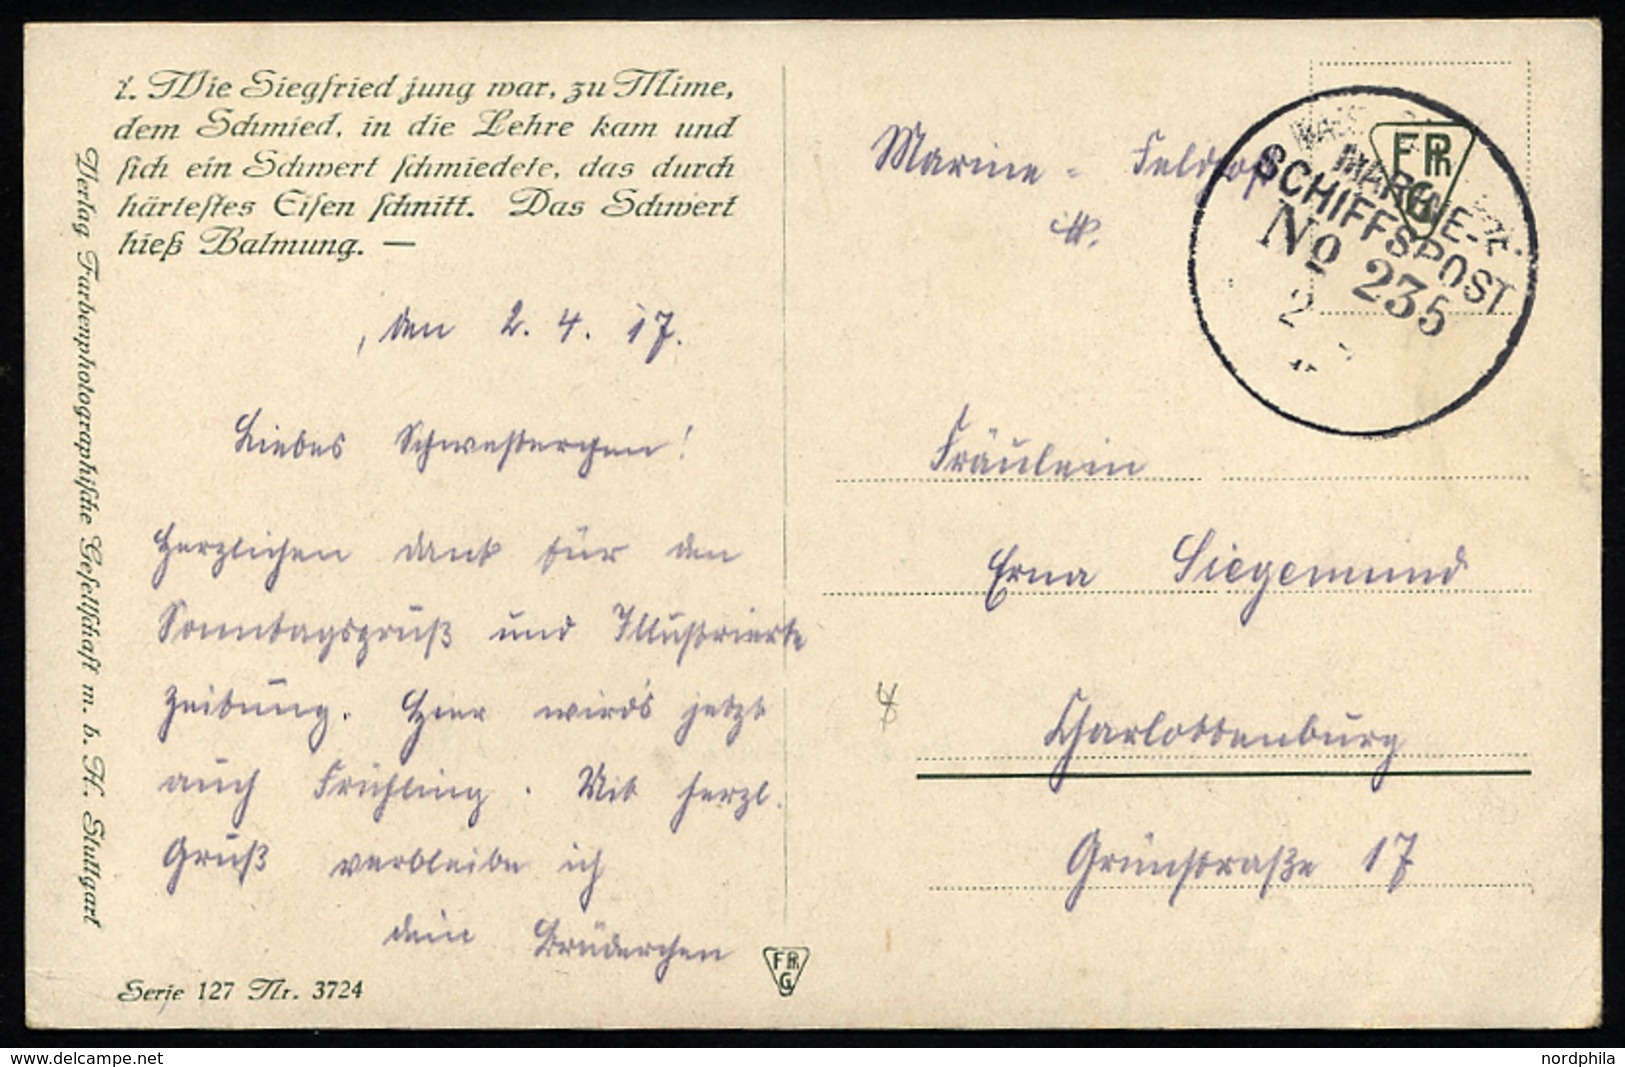 1. Wie Siegfried jung war, zu Mime,
dem Schmied, in die Lehre kam und
sich ein Schwert schmiedete, das durch
härtestes Eisen schnitt. Das Schwert
hieß Balmung. —
Verlag Farbenphotographische Gesellschaft m. b. H. Stuttgart
den 2. 4. 17.
Liebes Schwesterchen!
Herzlichen Dank für den
Sonntagsgruß und Illustrierte
Zeitung. Hier wird's jetzt
auch Frühling. Mit herzl.
Gruß verbleibe ich
dein Brüderchen
Serie 127 Nr. 3724
FPhG
Marine-Feldpost
FPhG
MARINE-
SCHIFFSPOST
No 235
2
Fräulein
Erna Siegemund
Charlottenburg
Grünstraße 17
delcampe.net
nordphila